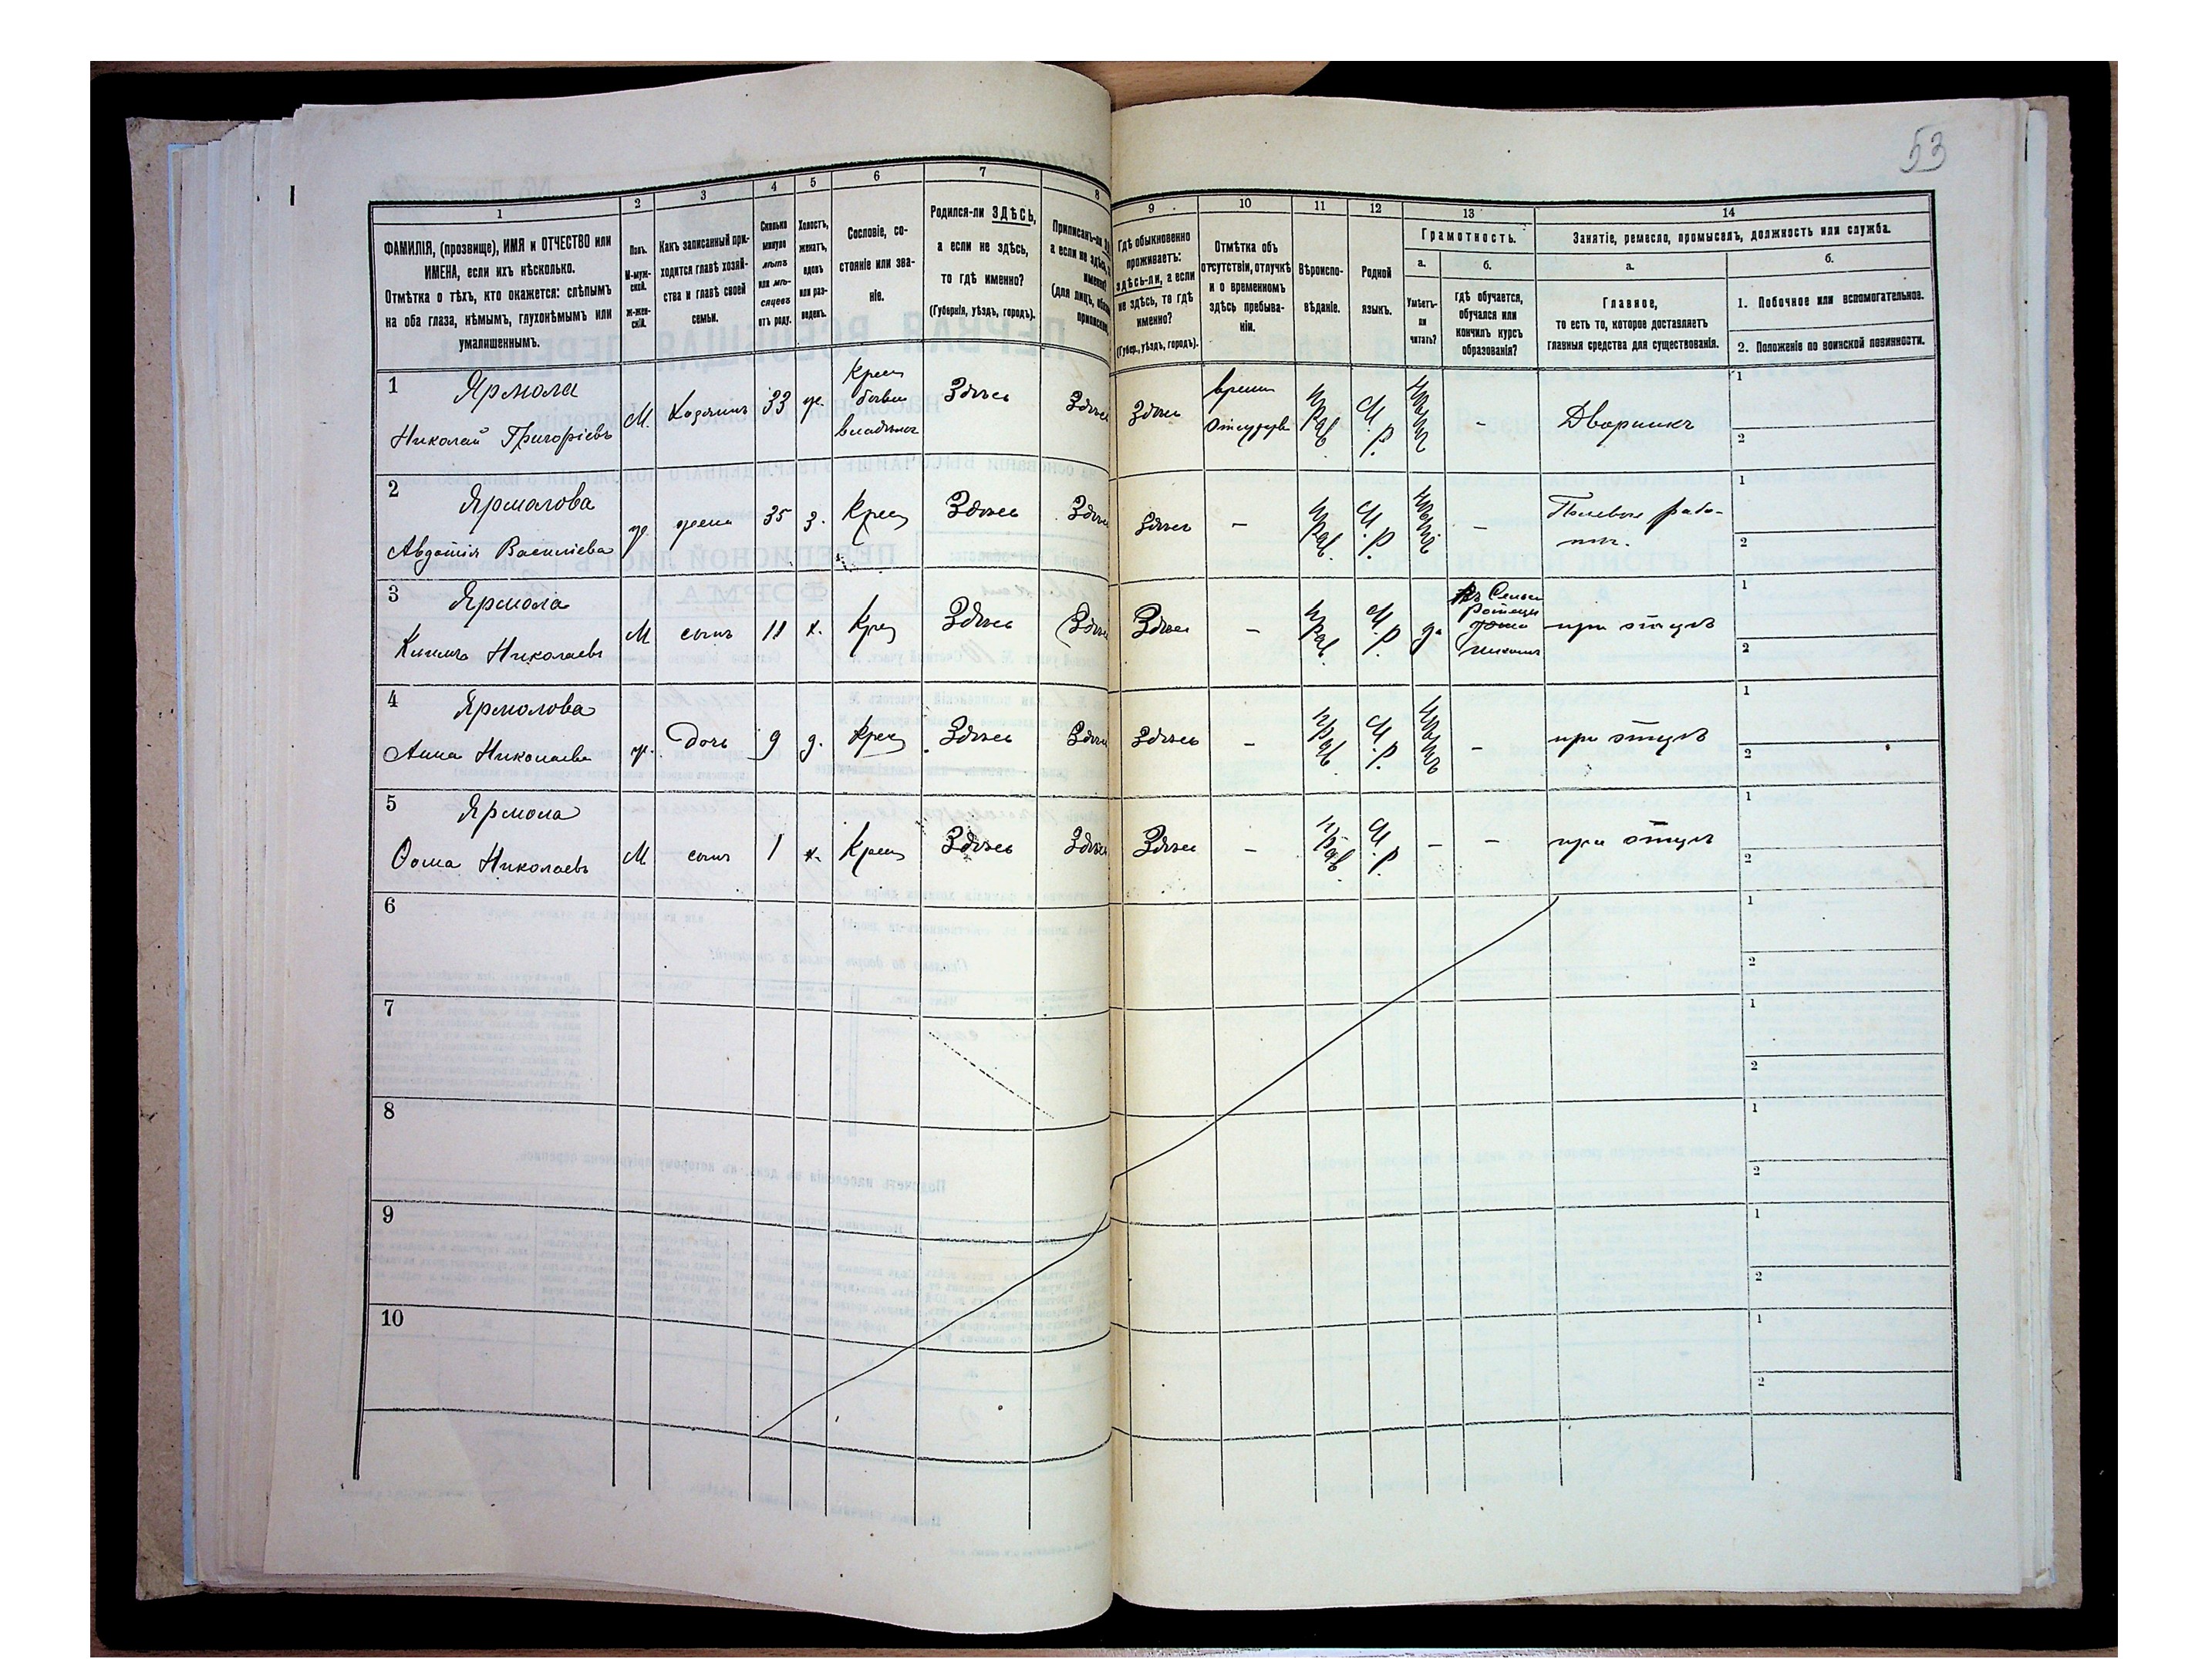 53
1
ФАМИЛІЯ, (прозвище), ИМЯ и ОТЧЕСТВО или
ИМЕНА, если ихъ нѣсколько.
Отмѣтка о тѣхъ, кто окажется: слѣпымъ
на оба глаза, нѣмымъ, глухонѣмымъ или
умалишеннымъ.
2
Полъ.
М-муж-
ской.
Ж-жен-
скій.
3
Какъ записанный при-
ходится главѣ хозяй-
ства и главѣ своей
семьи.
4
Сколько
минуло
лѣтъ
или мѣ-
сяцевъ
отъ роду.
5
Холостъ,
женатъ,
вдовъ
или раз-
веденъ.
6
Сословіе, со-
стояніе или зва-
ніе.
7
Родился-ли ЗДѢСЬ,
а если не здѣсь,
то гдѣ именно?
(Губернія, уѣздъ, городъ).
8
Приписанъ-ли
а если не здѣсь,
именно?
(для лицъ,
9
Гдѣ обыкновенно
проживаетъ:
здѣсь-ли, а если
не здѣсь, то гдѣ
именно?
(Губер., уѣздъ, городъ).
10
Отмѣтка объ
отсутствіи, отлучкѣ
и о временномъ
здѣсь пребыва-
ніи.
11
Вѣроиспо-
вѣданіе.
12
Родной
языкъ.
13
Грамотность.
а.
Умѣетъ-
ли
читать?
б.
Гдѣ обучается,
обучался или
кончилъ курсъ
образованія?
14
Занятіе, ремесло, промыселъ, должность или служба.
а.
Главное,
то есть то, которое доставляетъ
главныя средства для существованія.
б.
1. Побочное или вспомогательное.
2. Положеніе по воинской повинности.
1 Ярмола
Николай Григорієвъ
М. Хозяинъ 33 ж.
Крест
бывш
владѣльч
Здѣсь Здѣсь Здѣсь
времен
Отсутств
Прав. М.Р. - Дворникъ
1
2
2 Ярмолова
Авдотія Василіева
ж жена 35 з. Крест Здѣсь Здѣсь Здѣсь - Прав. М.Р. -
Полевыя рабо-
ты.
1
2
3 Ярмола
Климъ Николаевъ
М сынъ 11 х. Крес Здѣсь Здѣсь Здѣсь - Прав. М.Р. да
Въ Сельск
школѣ
при отцѣ
1
2
4 Ярмолова
Анна Николаева
ж. дочь 9 д. Крес Здѣсь Здѣсь Здѣсь - Прав. М.Р. - при отцѣ
1
2
5 Ярмола
Ѳома Николаевъ
М сынъ 1 х. Крест Здѣсь Здѣсь Здѣсь - Прав. М.Р. - - при отцѣ
1
2
6
1
2
7
1
2
8
1
2
9
1
2
10
1
2